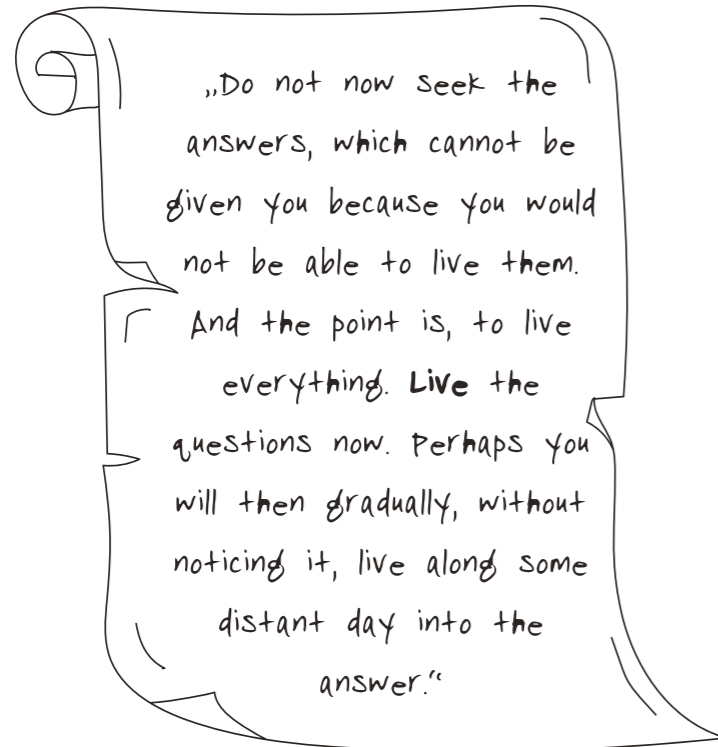 „Do not now seek the
answers, which cannot be
given you because you would
not be able to live them.
And the point is, to live
everything. Live the
questions now. Perhaps you
will then gradually, without
noticing it, live along some
distant day into the
answer.“